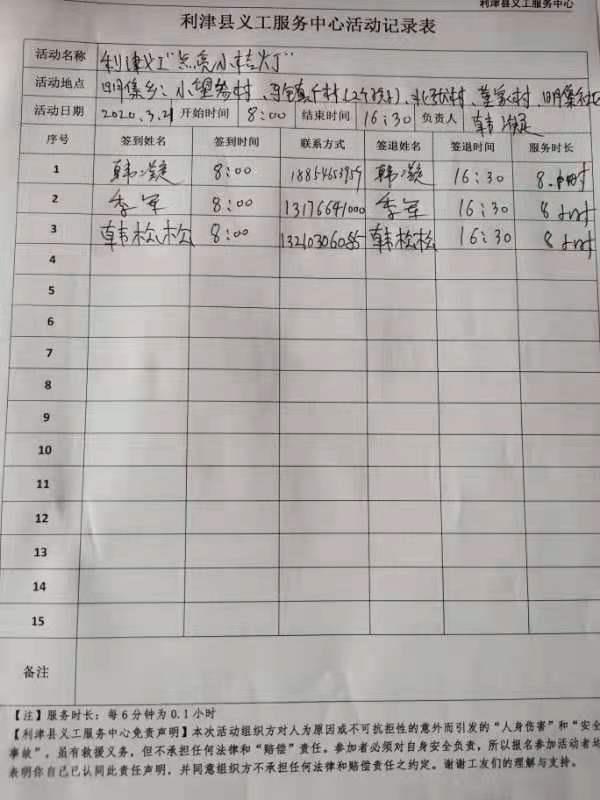 利津县义工服务中心
利津县义工服务中心活动记录表
活动名称 利津义工"点亮小桔灯"
活动地点 明集乡:小望参村、马镇千村(2个孩子)、北张村、董家村、明集社区
活动日期 2020.3.21 开始时间 8:00 结束时间 16:30 负责人 韩凝
序号 签到姓名 签到时间 联系方式 签退姓名 签退时间 服务时长
1 韩凝 8:00 18854653959 韩凝 16:30 8小时
2 季军 8:00 13176641000 季军 16:30 8小时
3 韩松松 8:00 13210306085 韩松松 16:30 8小时
4
5
6
7
8
9
10
11
12
13
14
15
备注
【注】服务时长:每6分钟为0.1小时
【利津县义工服务中心免责声明】本次活动组织方对人为原因或不可抗拒性的意外而引发的"人身伤害"和"安全
事故",虽有救援义务,但不承担任何法律和"赔偿"责任。参加者必须对自身安全负责,所以报名参加活动者均
表明你自己已认同此责任声明,并同意组织方不承担任何法律和赔偿责任之约定。谢谢工友们的理解与支持。